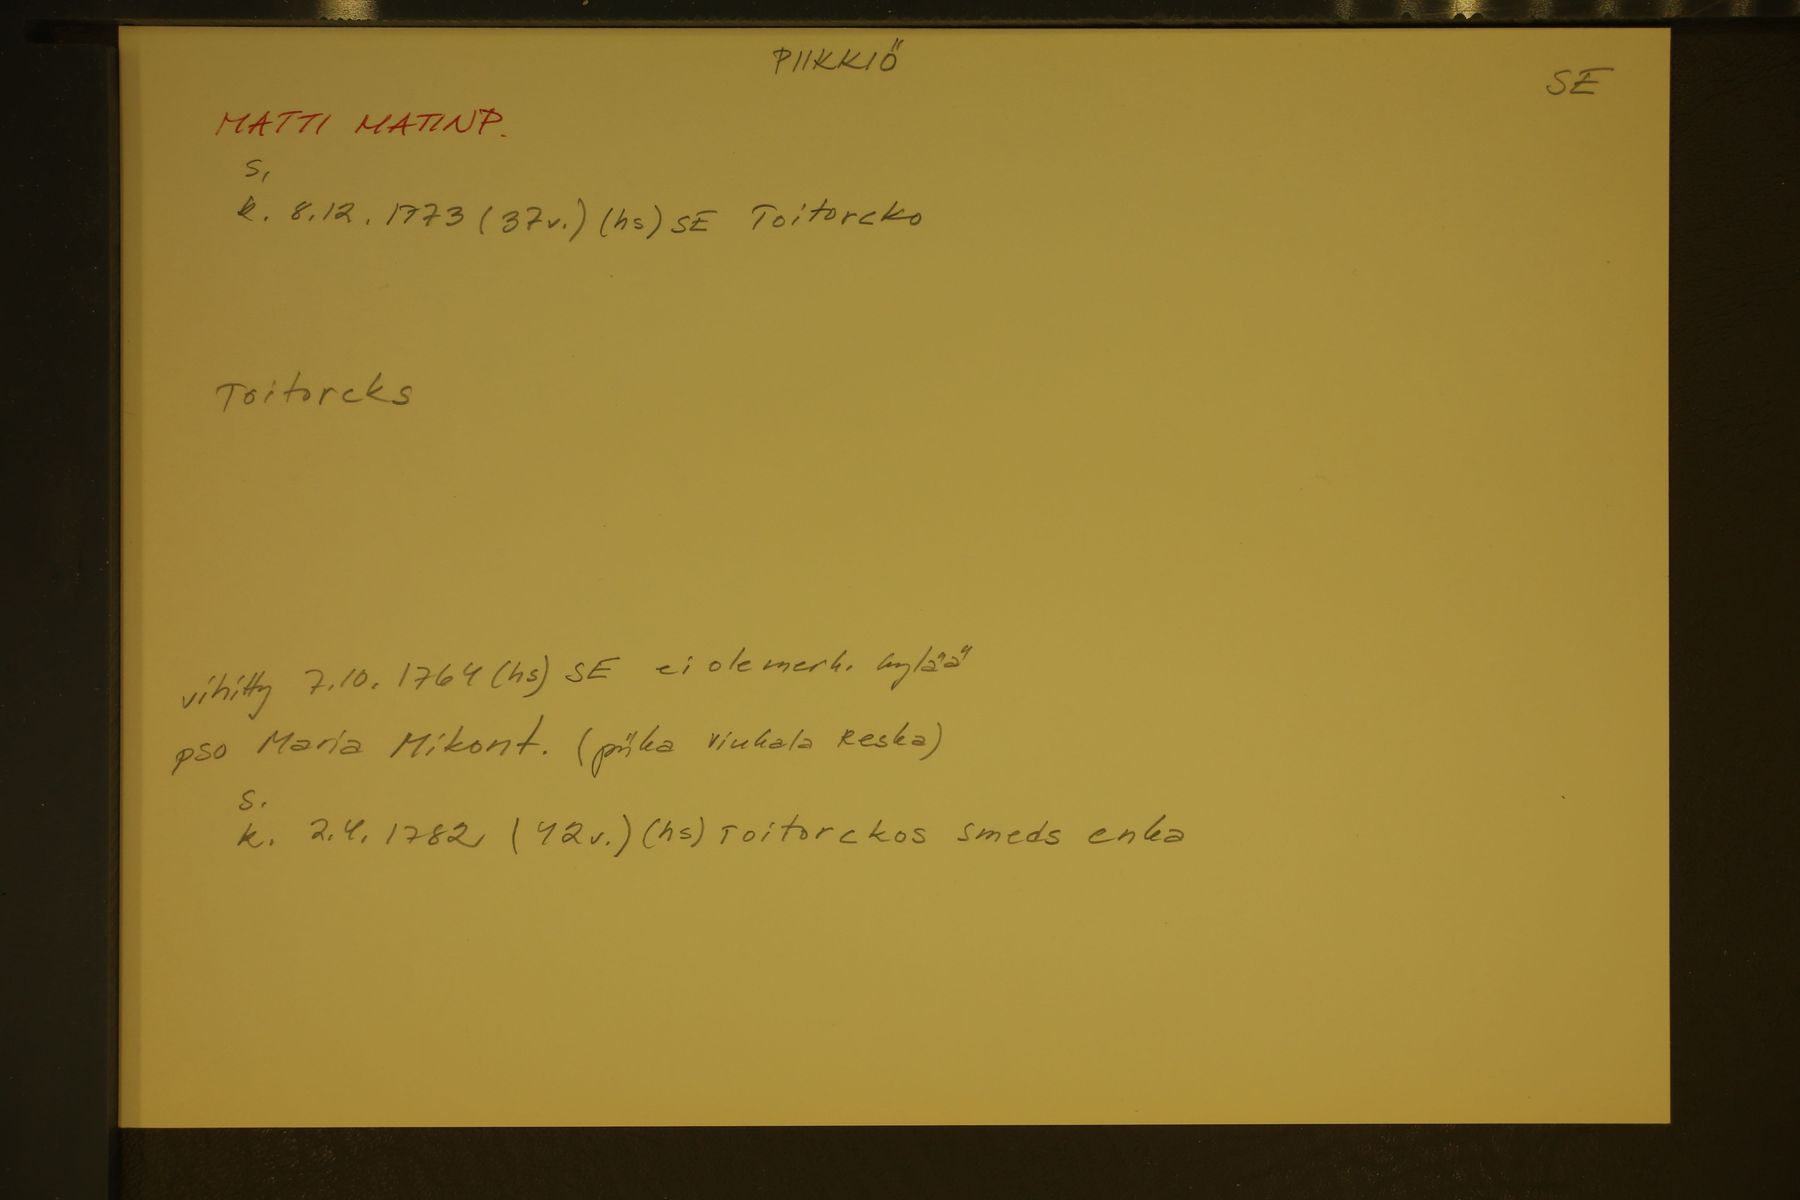 PIIKKIÖ
SE
MATTI MATINP.
s.
k. 8.12.1773 (37v.) (hs) SE Toitorcko
Toitorcks
vihitty 7.10.1764 (hs) SE ei ole merk. kylää
pso Maria Mikont. (piika Viukala Reska)
s.
k. 2.4.1782 (42v.) (hs) Toitorckos smeds enka